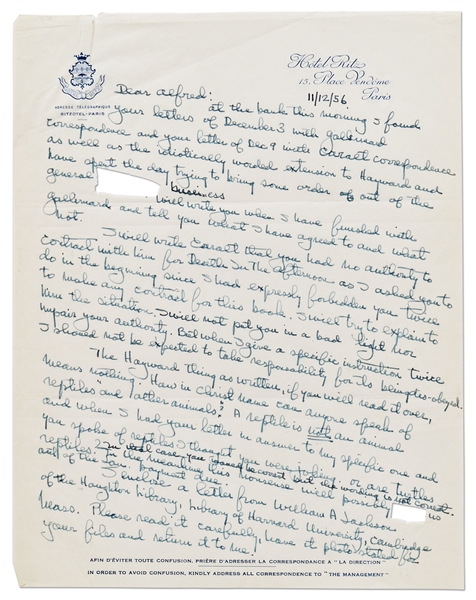 Hôtel Ritz
15, Place Vendôme
Paris
ADRESSE TÉLÉGRAPHIQUE
RITZOTEL-PARIS
11/12/56
Dear Alfred:
at the bank this morning I found
your letters of December 3 with gallimard
correspondence and your letter of Dec 9 with correspondence
as well as the idiotically worded extension to Hayward and
have spent the day trying to bring some order out of the
general business
Will write you when I have finished with
gallimard and tell you what I have agreed to and what
not.
I will write that you had no authority to
contract with him for Death In The Afternoon as I asked you to
do in the beginning since I had expressly forbidden you twice
to make any contract for this book. I will try to explain to
him the situation. I will not put you in a bad light nor
impair your authority. But when I give a specific instruction twice
I should not be expected to take responsibility for its being dis-obeyed.
The Hayward thing as written, if you will read it over,
means nothing. How in Christ name can anyone speak of
reptiles "and other animals"? A reptile is not an animal
and when I had your letter in answer to my specific one and
you spoke of reptiles I thought you were joking. or are turtles
reptiles? In that case you be correct but the wording is not correct.
In the meantime this nonsense will possibly us
out of the payment due.
I enclose a letter from William A Jackson
of the Houghton Library, Library of Harvard University, Cambridge
Mass. Please read it carefully, have it photo-stated for
your files and return it to me.
AFIN D'ÉVITER TOUTE CONFUSION, PRIÈRE D'ADRESSER LA CORRESPONDANCE A "LA DIRECTION"
IN ORDER TO AVOID CONFUSION, KINDLY ADDRESS ALL CORRESPONDENCE TO "THE MANAGEMENT"